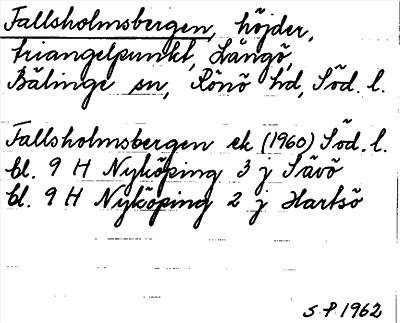 Fallsholmsbergen, höjder,
triangelpunkt, Långö,
Bälinge sn, Rönö hd, Söd. l.
Fallsholmsbergen ek (1960) Söd. l.
bl. 9 H Nyköping 3 j Sävö
bl. 9 H Nyköping 2 j Hartsö
S P 1962